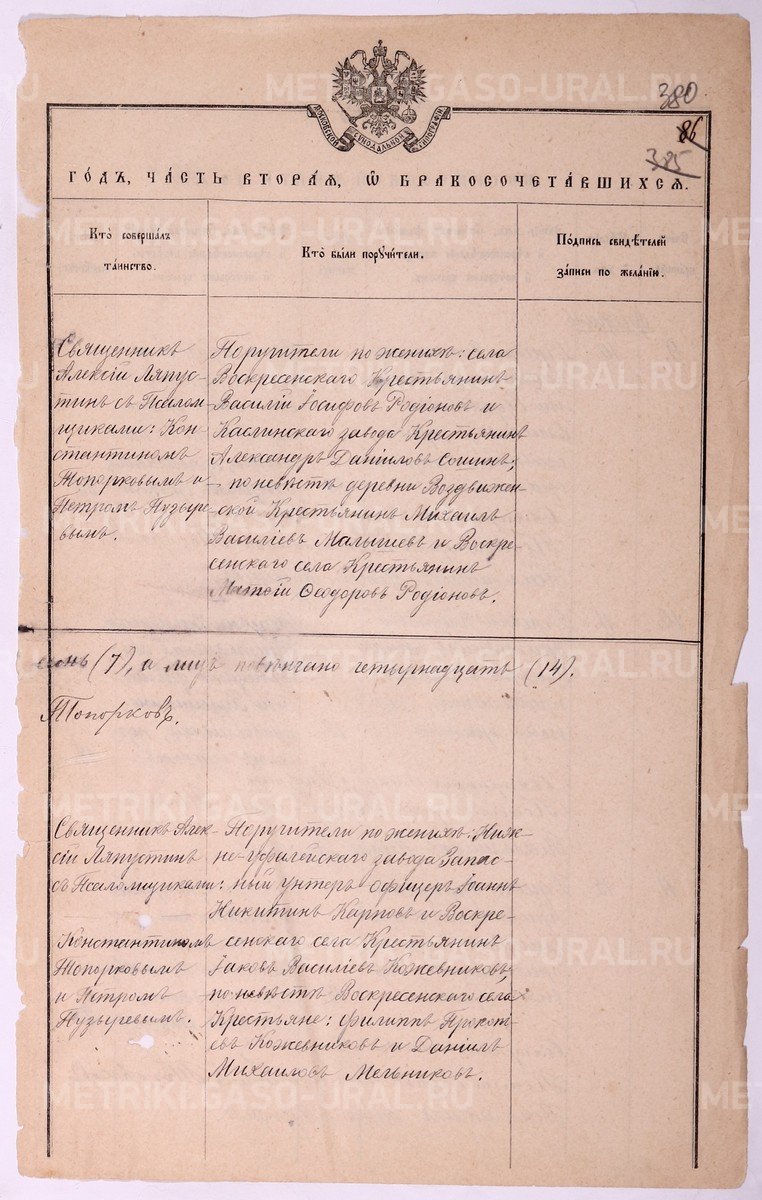 МОСКОВСКОЙ СѴНОДАЛЬНОЙ ТИПОГРАФІИ
380
86
385
ГО́ДЪ, ЧА́СТЬ ВТОРА́Я, Ѿ БРАКОСОЧЕТА́ВШИХСЯ.
Кто̀ соверша́лъ
та́инство.
Кто̀ бы́ли поручи́тели.
По́дпись свидѣ́телей
за́писи по жела́нію.
Священникъ
Алексій Ляпус-
тинъ съ Псалом-
щиками: Кон-
стантиномъ
Топорковымъ и
Петромъ Пузыре-
вымъ.
Поручители по женихѣ: села
Воскресенскаго Крестьянинъ
Василій Іосифовъ Родіоновъ и
Каслинскаго завода Крестьянинъ
Александръ Даніиловъ Сошинъ;
– по невѣстѣ деревни Воздвижен-
ской Крестьянинъ Михаилъ
Василіевъ Малышевъ и Воскре-
сенскаго села Крестьянинъ
Матѳій Ѳеодоровъ Родіоновъ.
семь (7), а лицъ повѣнчано четырнадцать (14).
Топорковъ.
Священникъ Алек-
сій Ляпустинъ
съ Псаломщиками:
Константиномъ
Топорковымъ
и Петромъ
Пузыревымъ.
Поручители по женихѣ: Ниж-
не-Уфалейскаго завода Запас-
ный унтеръ офицеръ Іоаннъ
Никитинъ Карповъ и Воскре-
сенскаго села Крестьянинъ
Іаковъ Василіевъ Кожевниковъ;
по невѣстѣ Воскресенскаго села
Крестьяне: Филиппъ Прокопі-
евъ Кожевниковъ и Даніилъ
Михаиловъ Мельниковъ.
METRIKI.GASO-URAL.RU